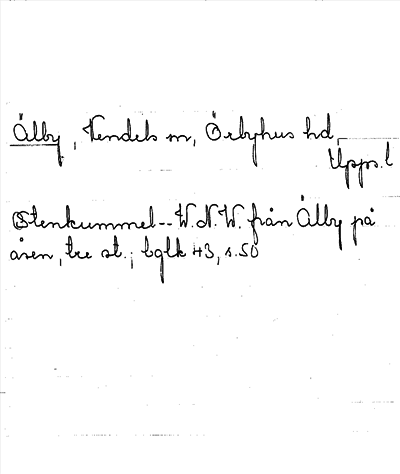 Ålby, Vendels sn, Örbyhus hd,
Upps. l
Stenkummel -- W.N.W. från Ålby på
åsen, tre st.; bglk 43, s. 50